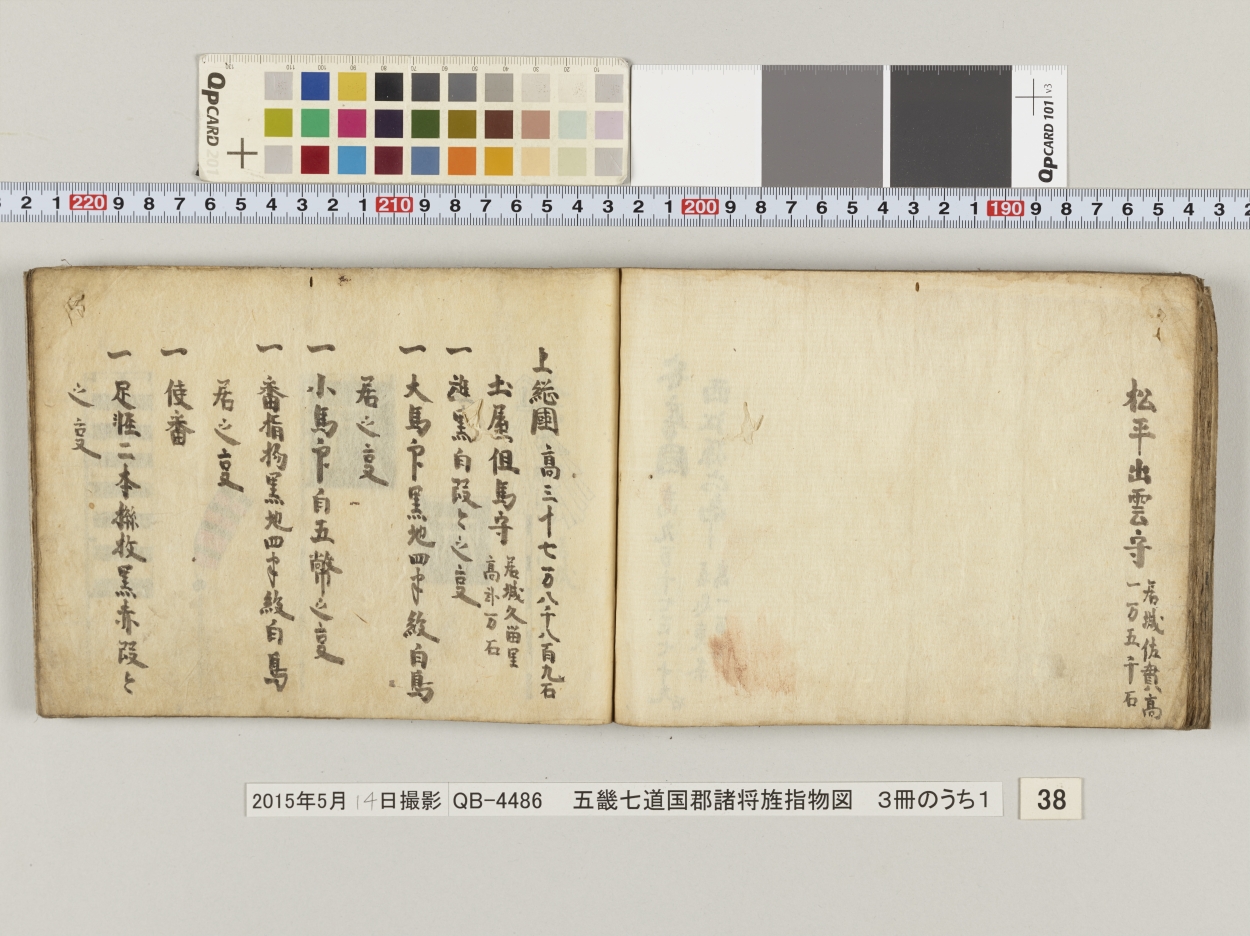 松平出雲守
居城佐貫高
一万五千石
上総國 高三十七万八千八百九石
土屋但馬守
居城久留里
高弐万石
一 黒白段々之亘
一 大馬印黒地四半紋白鳥
居之亘
一 小馬印白五幣之亘
一 番指物黒地四半紋白鳥
居之亘
一 使番
一 足軽二本撓枚黒赤段々
之亘
2015年5月14日撮影 QB-4486 五畿七道国郡諸将旌指物図 3冊のうち1
38
QPCARD 201
QPCARD 101 v3
2 1 220 9 8 7 6 5 4 3 2 1 210 9 8 7 6 5 4 3 2 1 200 9 8 7 6 5 4 3 2 1 190 9 8 7 6 5 4 3 2